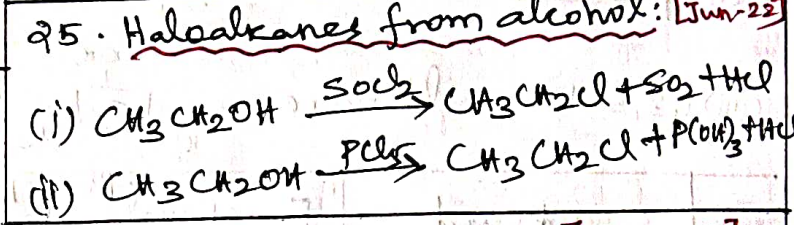 25. Haloalkanes from alcohol: [Jun-22]
(i) CH3CH2OH SOCl2→ CH3CH2Cl + SO2 + HCl
(ii) CH3CH2OH PCl5→ CH3CH2Cl + P(OH)3 + HCl